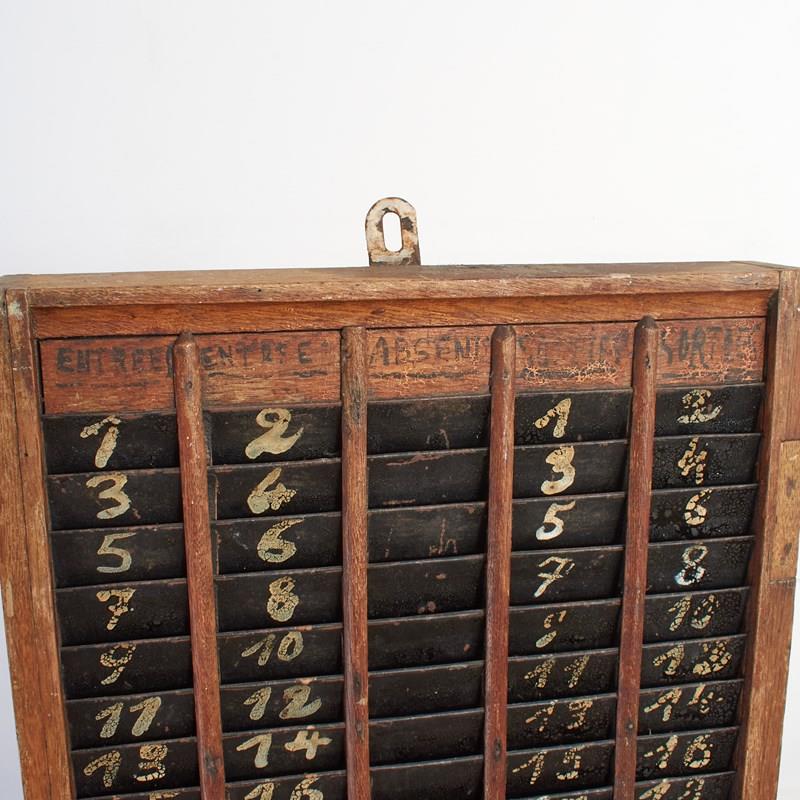 ENTREE ENTREE ABSENT SORTIE SORTIE
1 2 1 2
3 4 3 4
5 6 5 6
7 8 7 8
9 10 9 10
11 12 11 12
13 14 13 14
16 15 16